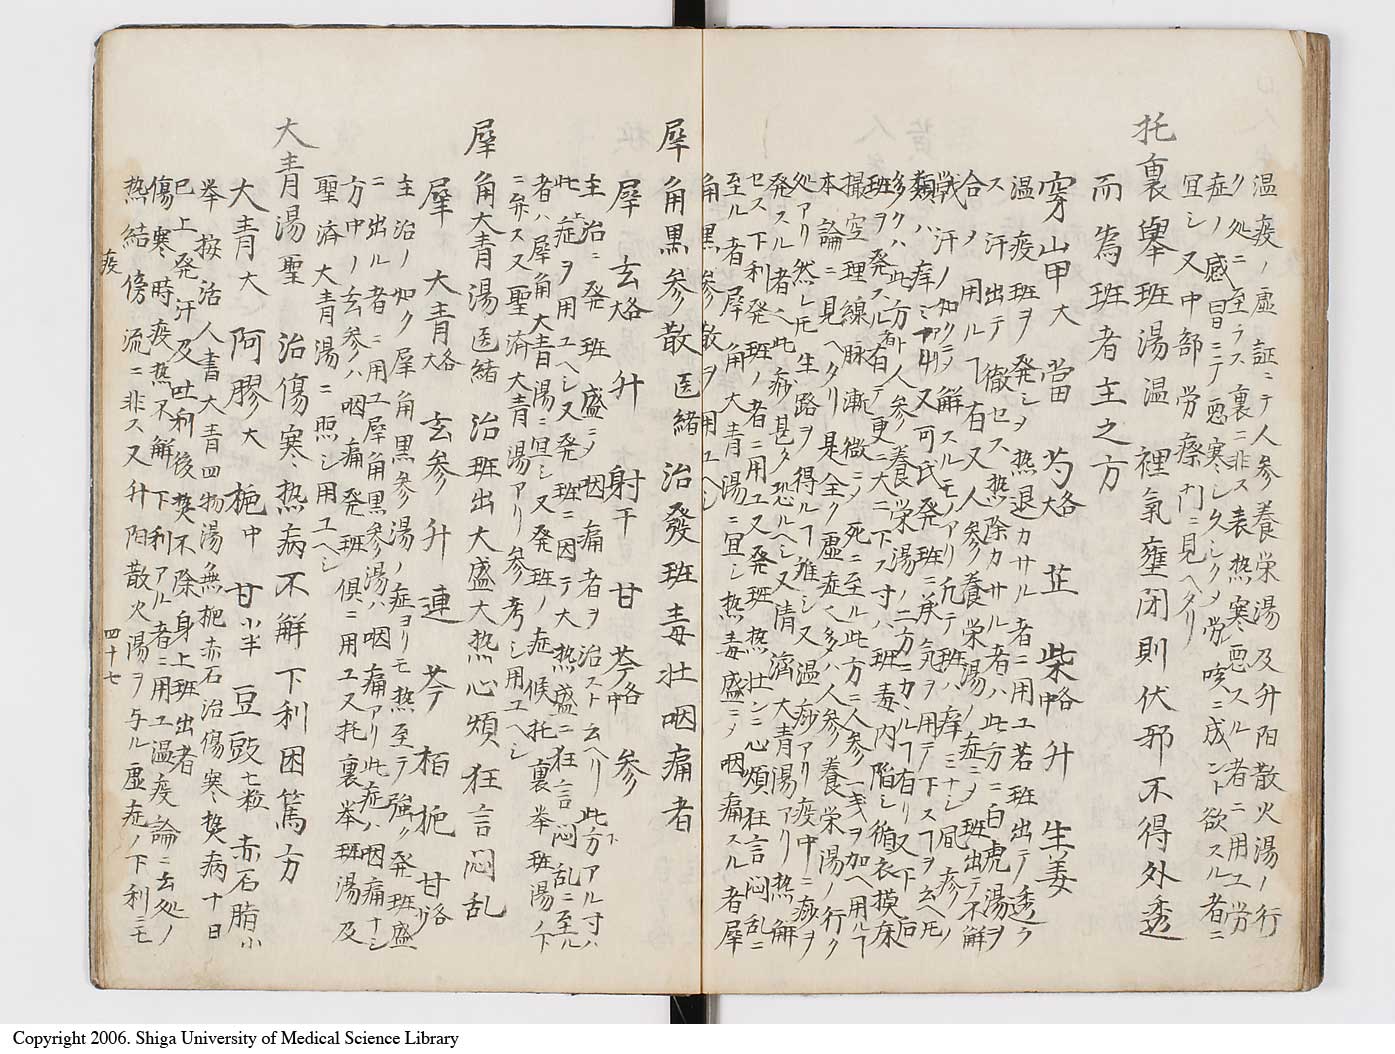 温疫ノ虚証ニテ人参養栄湯及升陽散火湯ノ行
ク処ニ至ラス裏ニ非ス表熱寒悪スル者ニ用ユ労
症ノ感冒ニテ悪寒シ久シクメ労咳ニ成ント欲スル者ニ
宜シ又中部労瘵門ニ見ヘタリ
托裏舉班湯温 裡氣壅閉則伏邪不得外透
而為班者主之方
穿山甲大 當 芍各大 芷 柴各中 升 生姜
温疫班ヲ発シヲ熱退カサル者ニ用ユ若班出テ透ラ
ス汗出テ徹セス熱除カサル者ハ此方ニ白虎湯ヲ
合ノ用ルヿ有又人参養栄湯ノ症ニヲ班出テ不解
戦汗ノ如クニテ解スルモノアリ凢テ班ハ痒ミナシ
類ハ痒ミ 又可氏発班ニ承気ヲ用テ下スヿヲ云ヘ𪜈
多クハ此方ト人参養栄湯ノ二方ニカヽルヿ有リ又下后
班ヲ発スル者有テ更ニ大ニ下ス寸ハ班毒内陥シ循衣摸床
撮空理線脉漸微ニメ死ニ至ル此方ニ人参一戔ヲ加ヘ用ルヿ
本論ニ見ヘタリ是全ク虚症ヘ多ハ人参養栄湯ノ行ク
処アリ然レ𪜈生路ヲ得ルヿ難シ又温痧アリ疫中ニ痧ヲ
発スル者ヘ此痧甚タ恐ルヘシ又清済大青湯アリ熱解
セス下利発班ノ者ニ用ユ又発班熱壮ンニ心煩狂言悶乱ニ
至ル者犀角大青湯ニ宜シ熱毒盛ニメ咽痛スル者犀
角黒参散ヲ用ユヘシ
犀角黒参散医緒 治發班毒壮咽痛者
犀 玄各大 升 射干 甘 芩各中 参
主治ニ発班盛ニメ咽痛者ヲ治スト云ヘリ此方アル寸ハ
此症ヲ用ユヘシ又発班ニ因テ大熱盛ニ狂言悶乱ニ至ル
者ハ犀角大青湯ニ宜シ又発班ノ症候托裏挙班湯ノ下
ニ弁ス又聖済大青湯アリ参考シ用ユヘシ
犀角大青湯医緒 治班出大盛大热心煩狂言悶乱
犀 大青各大 玄参 升 連 芩 栢 梔 甘各少
主治ノ如ク犀角黒参湯ノ症ヨリモ热至テ強ク発班盛
ニ出ル者ニ用ユ犀角黒参湯ハ咽痛アリ此症ハ咽痛ナシ
方中ノ玄参ハ咽痛発班俱ニ用ユ又托裏挙班湯及
聖済大青湯ニ照シ用ユヘシ
大青湯聖 治傷寒热病不解下利困篤方
大青大 阿膠大 梔中 甘小半 豆豉七粒 赤石脂小
挙按活人書大青四物湯無梔赤石治傷寒热病十日
已上発汗及吐利後热不除身上班出者
傷寒時疫热不解下利アル者ニ用ユ温疫論ニ云処ノ
热結傍流ニ非ス又升陽散火湯ヲ与ル虚症ノ下利ニモ
疫 四十七